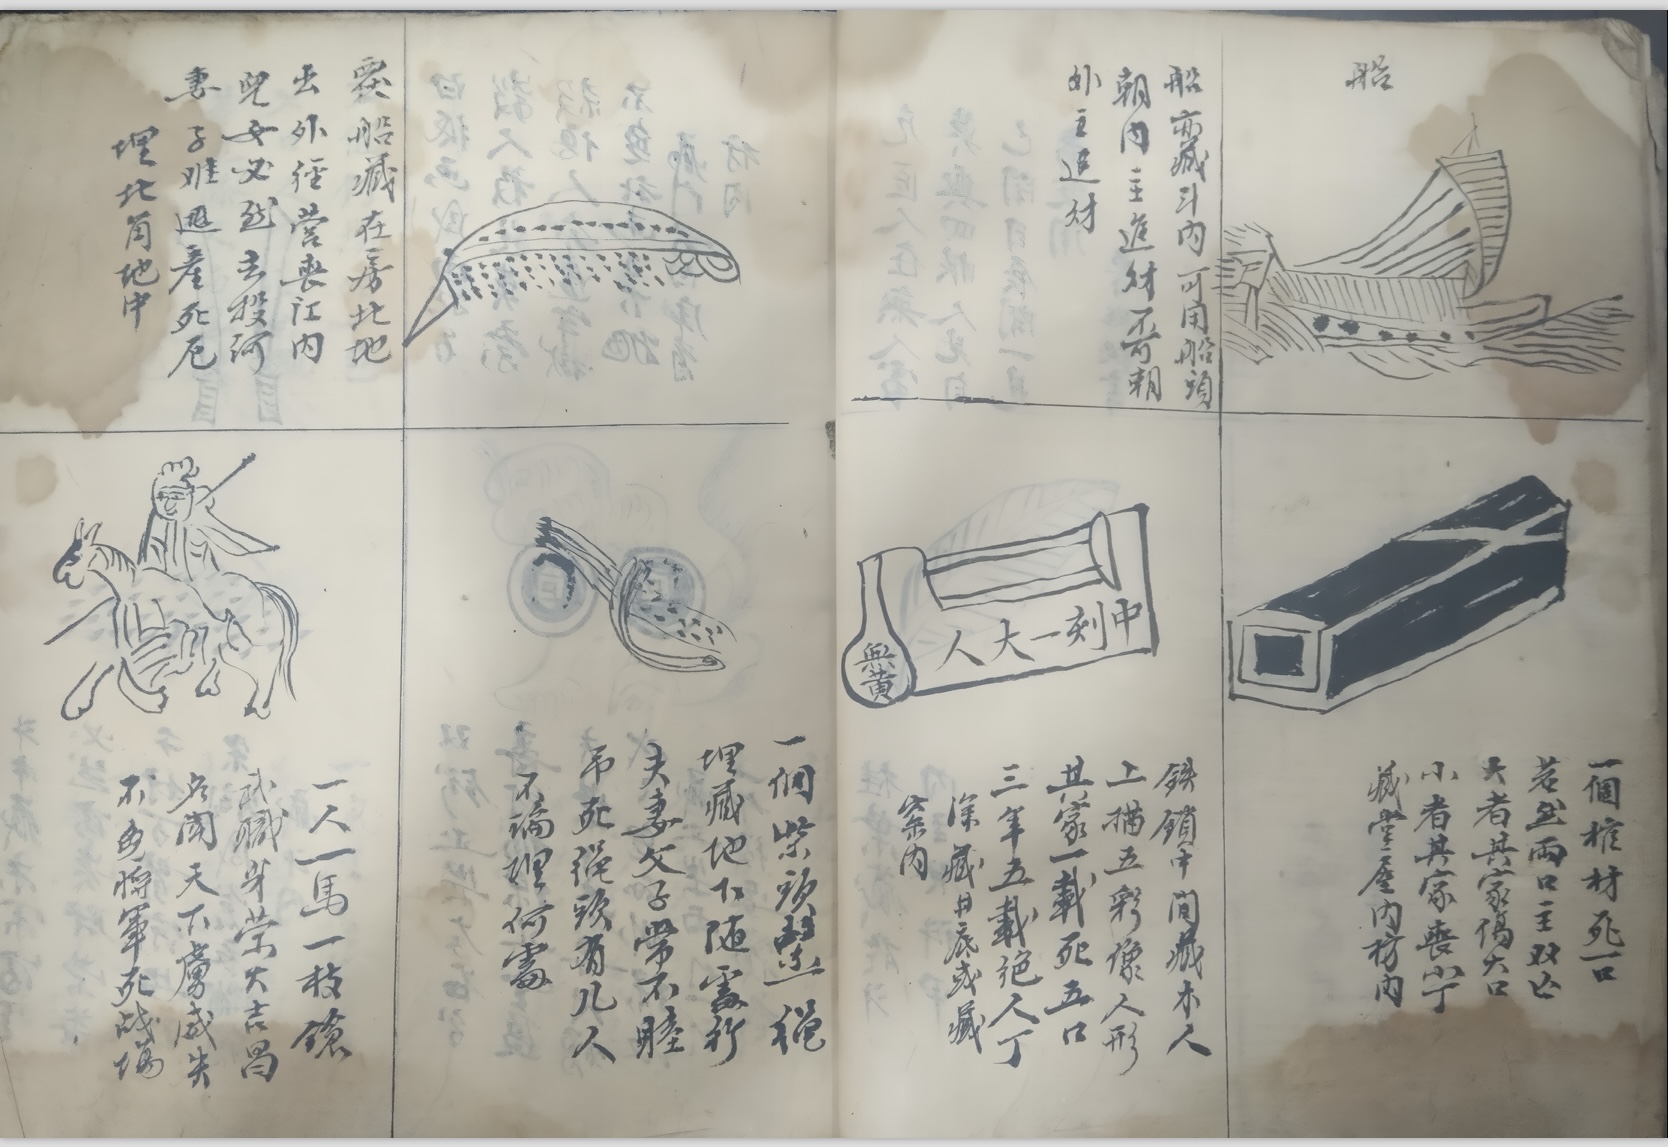 船
船亦藏斗内可用船頭
朝内主進財不可朝
外主退財
一個棺材死一口
若出兩口主双亡
大者其家傷大口
小者其家喪小丁
藏堂屋内枋内
中刻一大人
黄
鉄鎖中間藏木人
上描五彩像人形
其家一載死五口
三年五載絶人丁
深藏井底或藏
内
覆船藏在房北地
出外經營喪江内
兒女必然去投河
妻子难逃產死厄
埋北角地中
一個柴頭繩
埋藏地下随處行
夫妻父子常不睦
吊死繩頭有几人
不論埋何處
一人一馬一枝鎗
武職身荣大吉昌
名闻天下虜咸失
不免將軍死战場